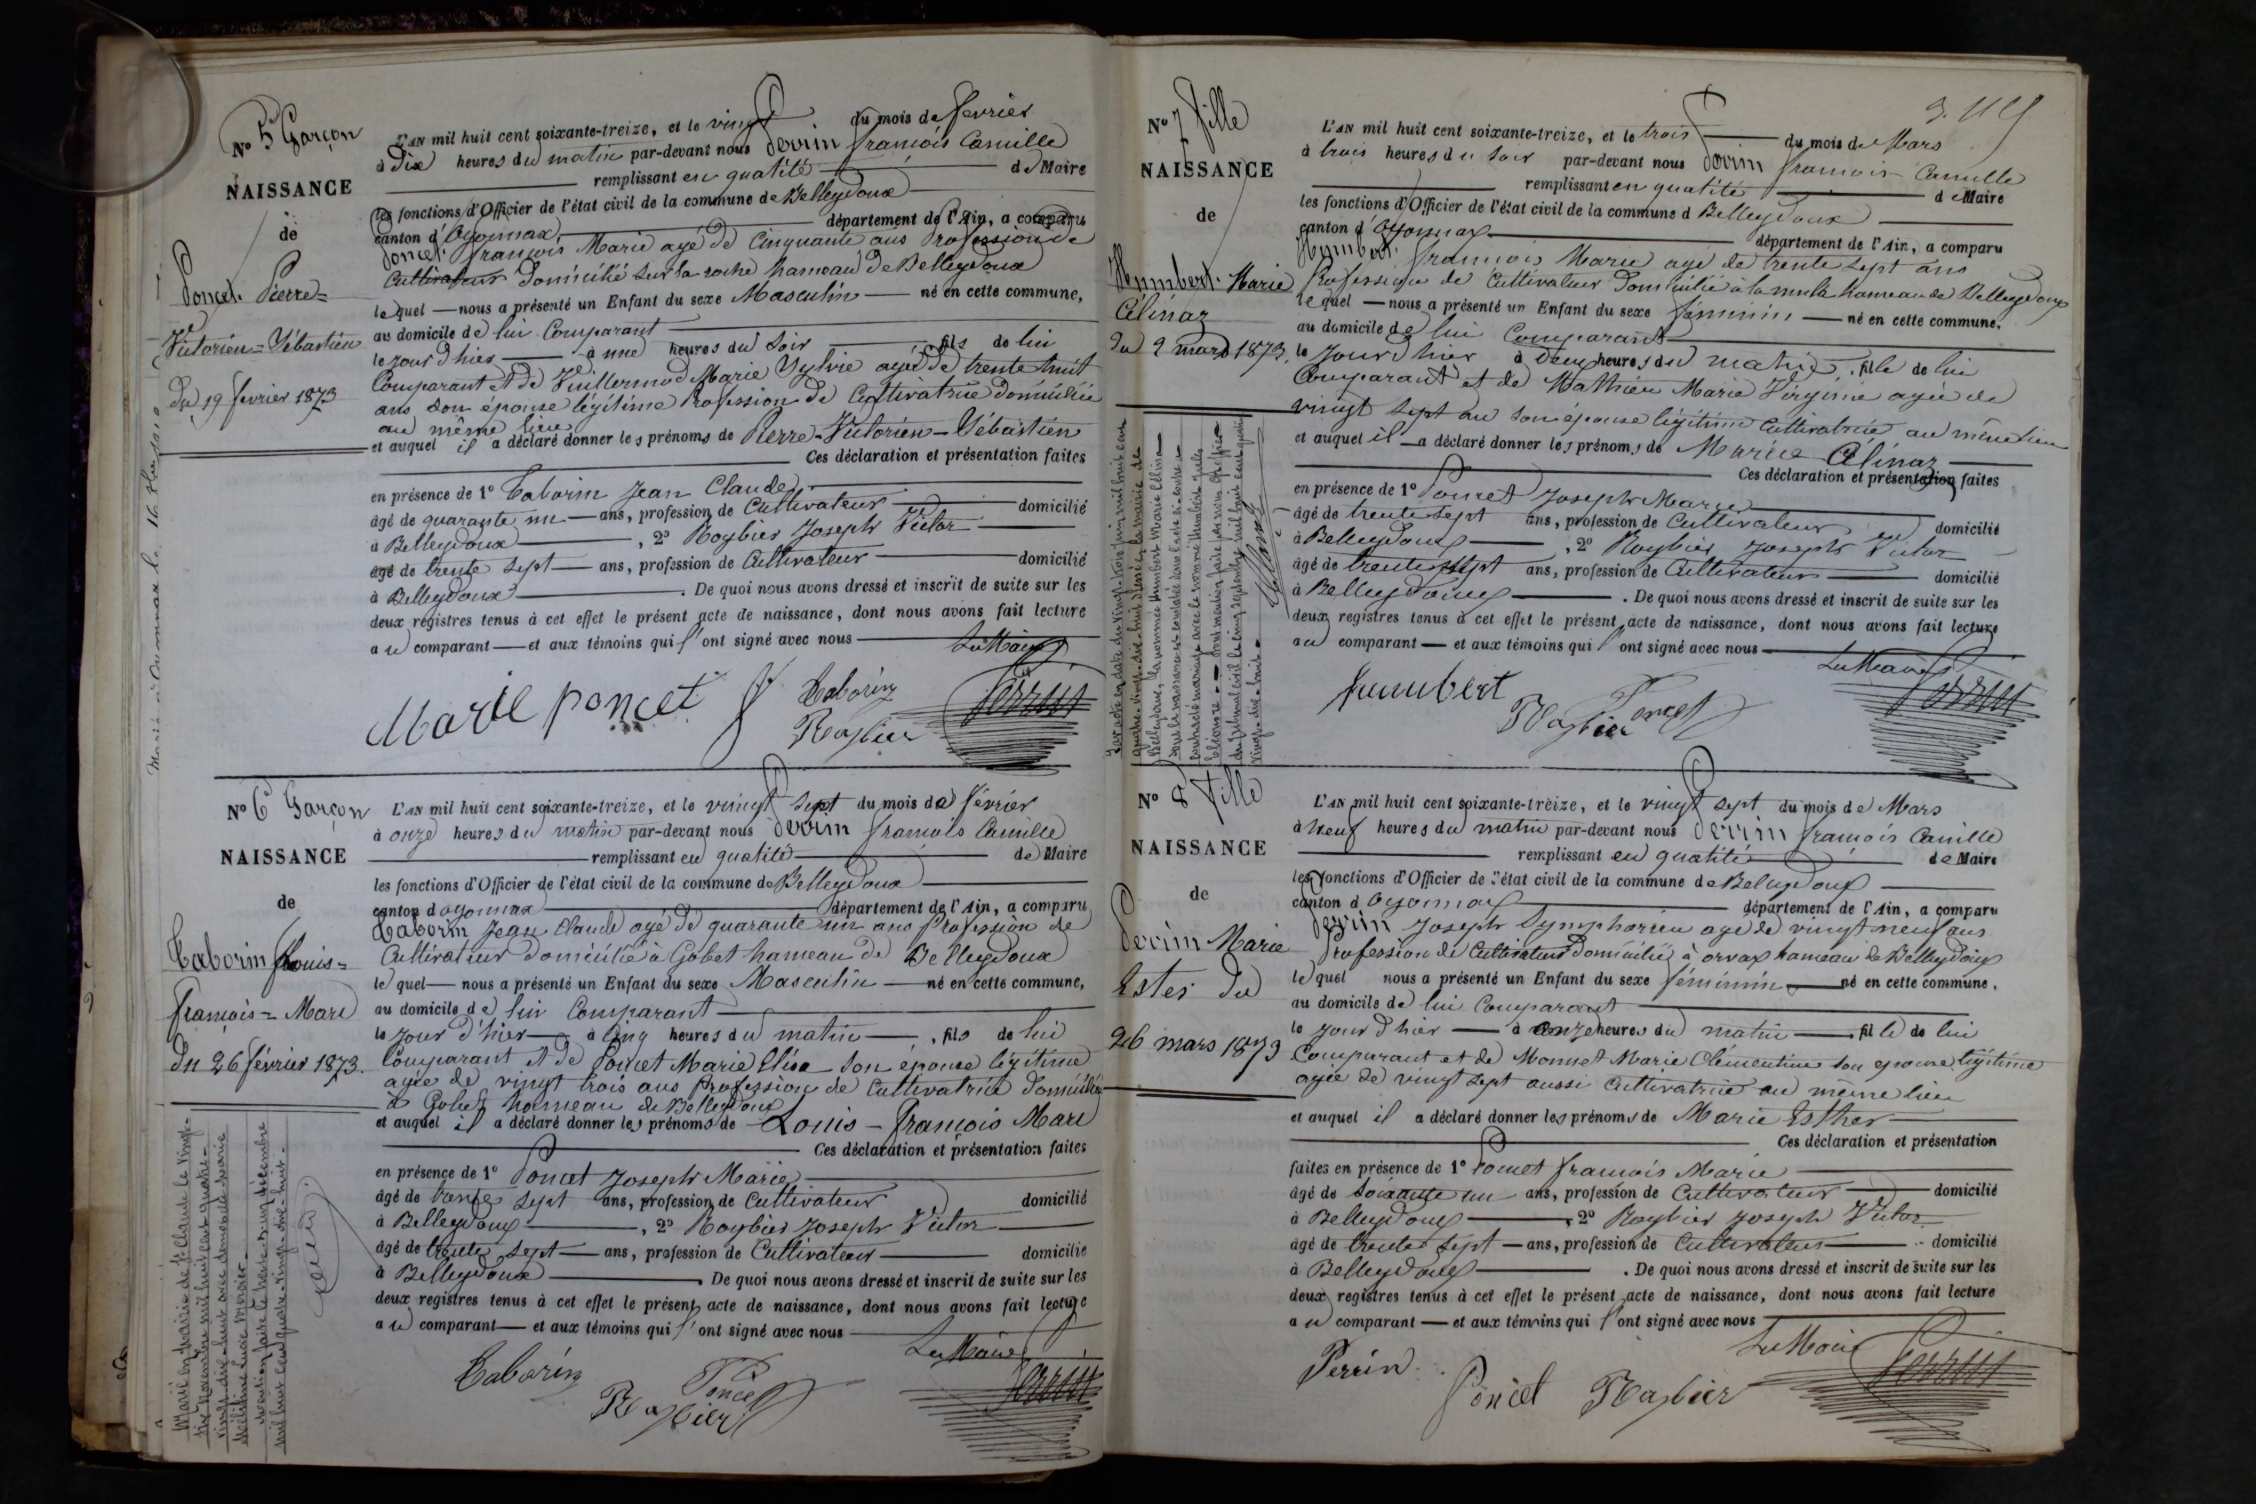 N° 5 Garçon
NAISSANCE
de
Poncet Pierre=
Victorien=Sébastien
du 19 fevrier 1873
L'AN mil huit cent soixante-treize, et le vingt du mois de fevrier
à Dix heures du matin par-devant nous Perrin françois Camille
remplissant en qualité de Maire
les fonctions d'Officier de l'état civil de la commune de Belleydoux
canton d'Oyonnax département de l'Ain, a comparu
Poncet françois Marie agé de Cinquante ans Profession de
Cultivateur Domicilié sur la roche hameau de Belleydoux
lequel nous a présenté un Enfant du sexe Masculin né en cette commune,
au domicile de lui Comparant
le jour d'hier à une heures du soir fils de lui
Comparant et de Vuillermoz Marie Sylvie agée de trente huit
ans son épouse légitime Profession de Cultivatrice domiciliée
au même lieu
et auquel il a déclaré donner les prénoms de Pierre-Victorien-Sébastien
Ces déclaration et présentation faites
en présence de 1° Taborin Jean Claude
âgé de quarante un ans, profession de Cultivateur domicilié
à Belleydoux, 2° Roybier Joseph Victor
âgé de trente sept ans, profession de Cultivateur domicilié
à Belleydoux. De quoi nous avons dressé et inscrit de suite sur les
deux registres tenus à cet effet le présent acte de naissance, dont nous avons fait lecture
au comparant et aux témoins qui l'ont signé avec nous
Le Maire
Marie poncet Taborin
Roybier Perrin
N° 6 Garçon
NAISSANCE
de
Taborin Louis=
françois=Mari
du 26 février 1873.
Marié en mairie de St Claude le vingt-
six Novembre mil huit cent quatre-
vingt-dix-huit avec demoiselle Marie
mention faite le trente-un décembre
mil huit cent quatre-vingt-dix-huit-
L'AN mil huit cent soixante-treize, et le vingt sept du mois de février
à onze heures du matin par-devant nous Perrin françois Camille
remplissant en qualité de Maire
les fonctions d'Officier de l'état civil de la commune de Belleydoux
canton d'oyonnax département de l'Ain, a comparu
Taborin Jean Claude agé de quarante un ans Profession de
Cultivateur domicilié à Gobet hameau de Belleydoux
lequel nous a présenté un Enfant du sexe Masculin né en cette commune,
au domicile de lui Comparant
le jour d'hier à Cinq heures du matin, fils de lui
Comparant et de Poncet Marie Elise son épouse légitime
agée de vingt trois ans Profession de Cultivatrice domiciliée
à Gobet hameau de Belleydoux
et auquel il a déclaré donner les prénoms de Louis-françois Mari
Ces déclaration et présentation faites
en présence de 1° Poncet Joseph Marie
âgé de trente sept ans, profession de Cultivateur domicilié
à Belleydoux, 2° Roybier Joseph Victor
âgé de trente sept ans, profession de Cultivateur domicilié
à Belleydoux. De quoi nous avons dressé et inscrit de suite sur les
deux registres tenus à cet effet le présent acte de naissance, dont nous avons fait lecture
au comparant et aux témoins qui l'ont signé avec nous
Le Maire
Taborin Poncet
Roybier Perrin
N° 7 fille
NAISSANCE
de
Humbert Marie
Célinaz
du 2 mars 1873.
L'AN mil huit cent soixante-treize, et le trois du mois de Mars
à trois heures du soir par-devant nous Perrin françois Camille
remplissant en qualité de Maire
les fonctions d'Officier de l'état civil de la commune d Belleydoux
canton d'Oyonnax département de l'Ain, a comparu
Humbert françois Marie agé de trente sept ans
Profession de Cultivateur Domicilié à la mula hameau de Belleydoux
lequel nous a présenté un Enfant du sexe féminin né en cette commune,
au domicile de lui Comparant
le jour d'hier à deux heures du matin, fille de lui
Comparant et de Mathieu Marie Virginie agée de
vingt sept an son épouse légitime Cultivatrice au même lieu
et auquel il a déclaré donner les prénoms de Marie Célinaz
Ces déclaration et présentation faites
en présence de 1° Poncet Joseph Marie
âgé de trente sept ans, profession de Cultivateur domicilié
à Belleydoux, 2° Roybier Joseph Victor
âgé de trente sept ans, profession de Cultivateur domicilié
à Belleydoux. De quoi nous avons dressé et inscrit de suite sur les
deux registres tenus à cet effet le présent acte de naissance, dont nous avons fait lecture
au comparant et aux témoins qui l'ont signé avec nous
Le Maire
humbert Poncet
Roybier Perrin
N° 8 fille
NAISSANCE
de
Perrin Marie
Ester du
26 mars 1873
L'AN mil huit cent soixante-treize, et le vingt sept du mois de Mars
à Neuf heures du matin par-devant nous Perrin françois Camille
remplissant en qualité de Maire
les fonctions d'Officier de l'état civil de la commune de Belleydoux
canton d'Oyonnax département de l'Ain, a comparu
Perrin Joseph Symphorien agé de vingt neuf ans
Profession de Cultivateur domicilié à orvaz hameau de Belleydoux
lequel nous a présenté un Enfant du sexe féminin né en cette commune,
au domicile de lui Comparant
le jour d'hier à onze heures du matin, fille de lui
Comparant et de Monnet Marie Clémentine son épouse légitime
agée de vingt sept aussi Cultivatrice au même lieu
et auquel il a déclaré donner les prénoms de Marie Esther
Ces déclaration et présentation
faites en présence de 1° Poncet françois Marie
âgé de soixante un ans, profession de Cultivateur domicilié
à Belleydoux, 2° Roybier Joseph Victor
âgé de trente sept ans, profession de Cultivateur domicilié
à Belleydoux. De quoi nous avons dressé et inscrit de suite sur les
deux registres tenus à cet effet le présent acte de naissance, dont nous avons fait lecture
au comparant et aux témoins qui l'ont signé avec nous
Le Maire
Perrin Poncet Roybier Perrin